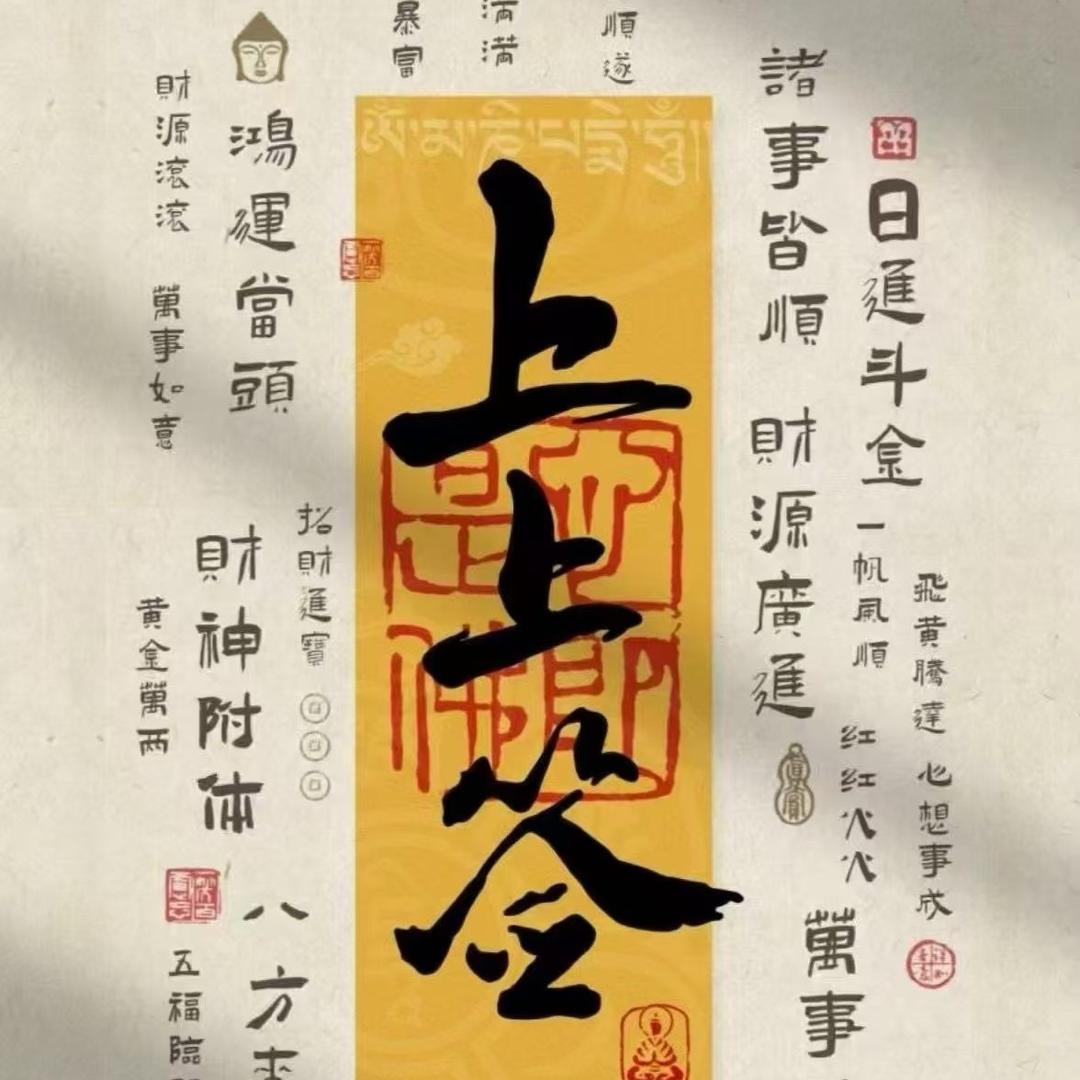 飛黄騰達 心想事成
日進斗金
一帆風順
红红火火
諸事皆順 財源廣進
萬事
順遂
满满
暴富
ཨོཾ་མ་ཎི་པདྨེ་ཧཱུྃ
上上签
心即是佛
招財進寶
鴻運當頭
財神附体
八方来
財源滚滚 萬事如意
黄金萬两
五福臨